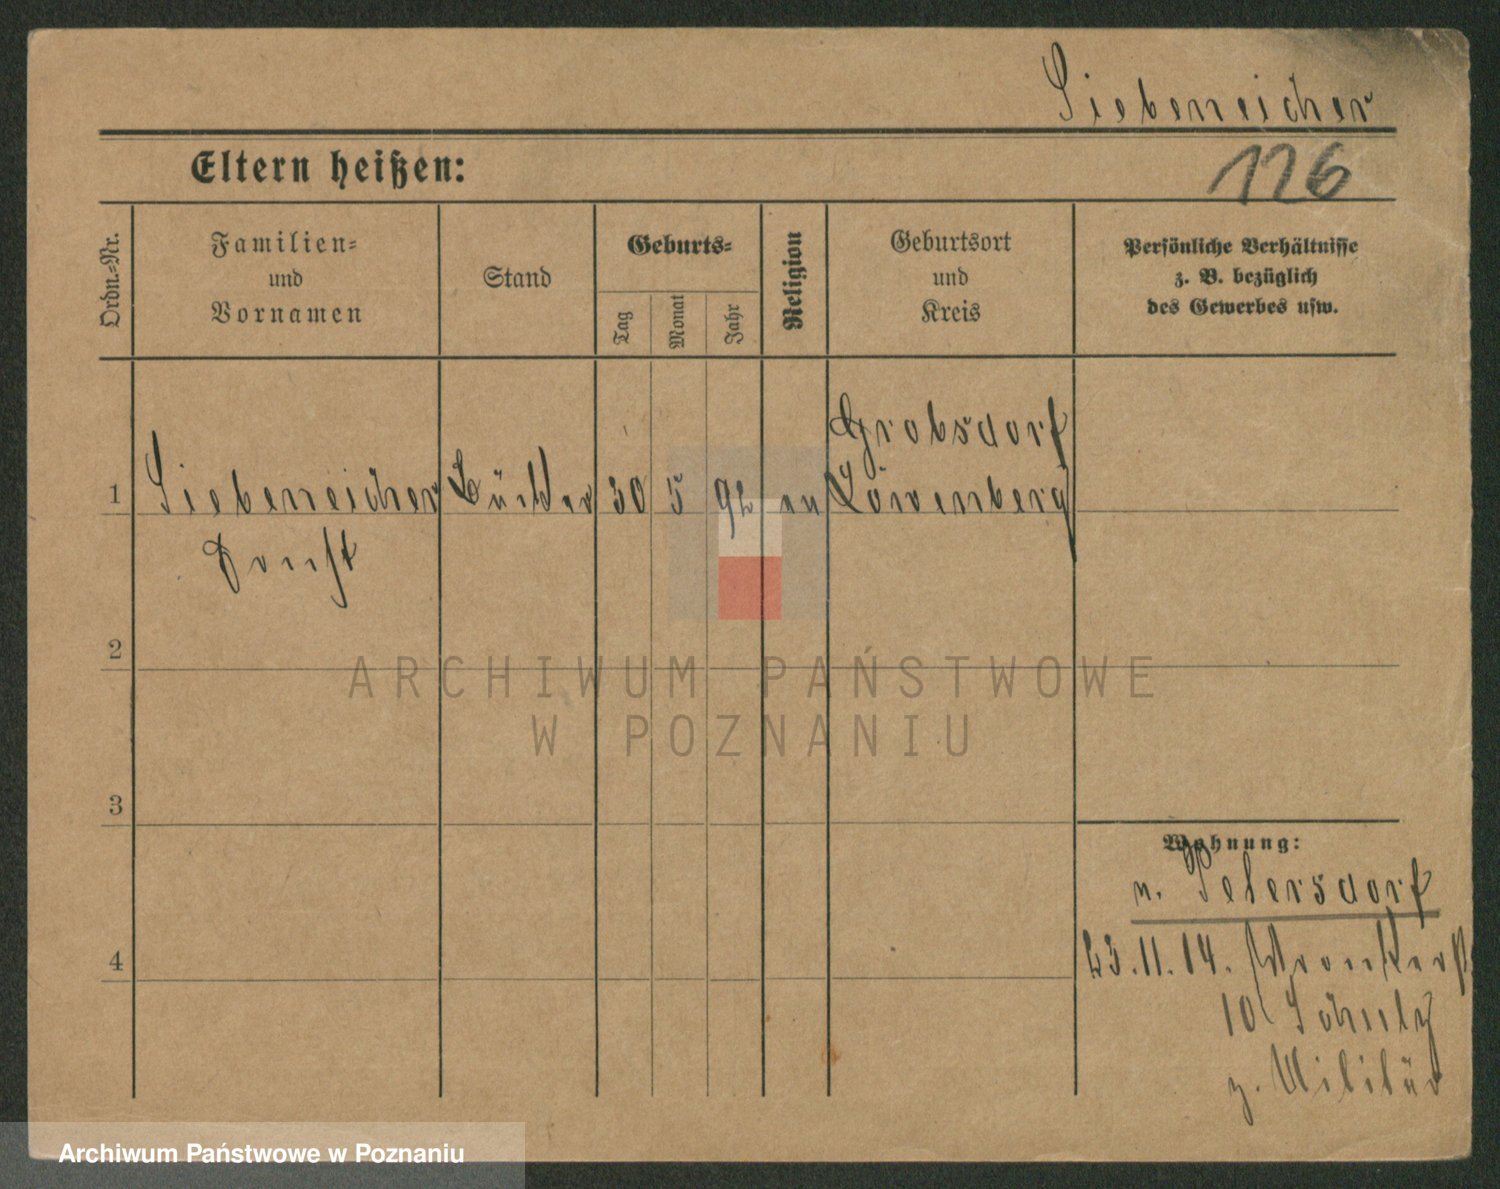 Siebeneicher
Eltern heißen:
126
Ordn.-Nr.
Familien-
und
Vornamen
Stand
Geburts-
Tag
Monat
Jahr
Religion
Geburtsort
und
Kreis
Persönliche Verhältnisse
z. B. bezüglich
des Gewerbes usw.
Grobsdorf
1 Siebeneicher 30 5 92 ev Löwenberg
2
3
4
Wohnung:
n. Petersdorf
23.11.14.
10 Schulz
z. Militär
ARCHIWUM PAŃSTWOWE
W POZNANIU
Archiwum Państwowe w Poznaniu